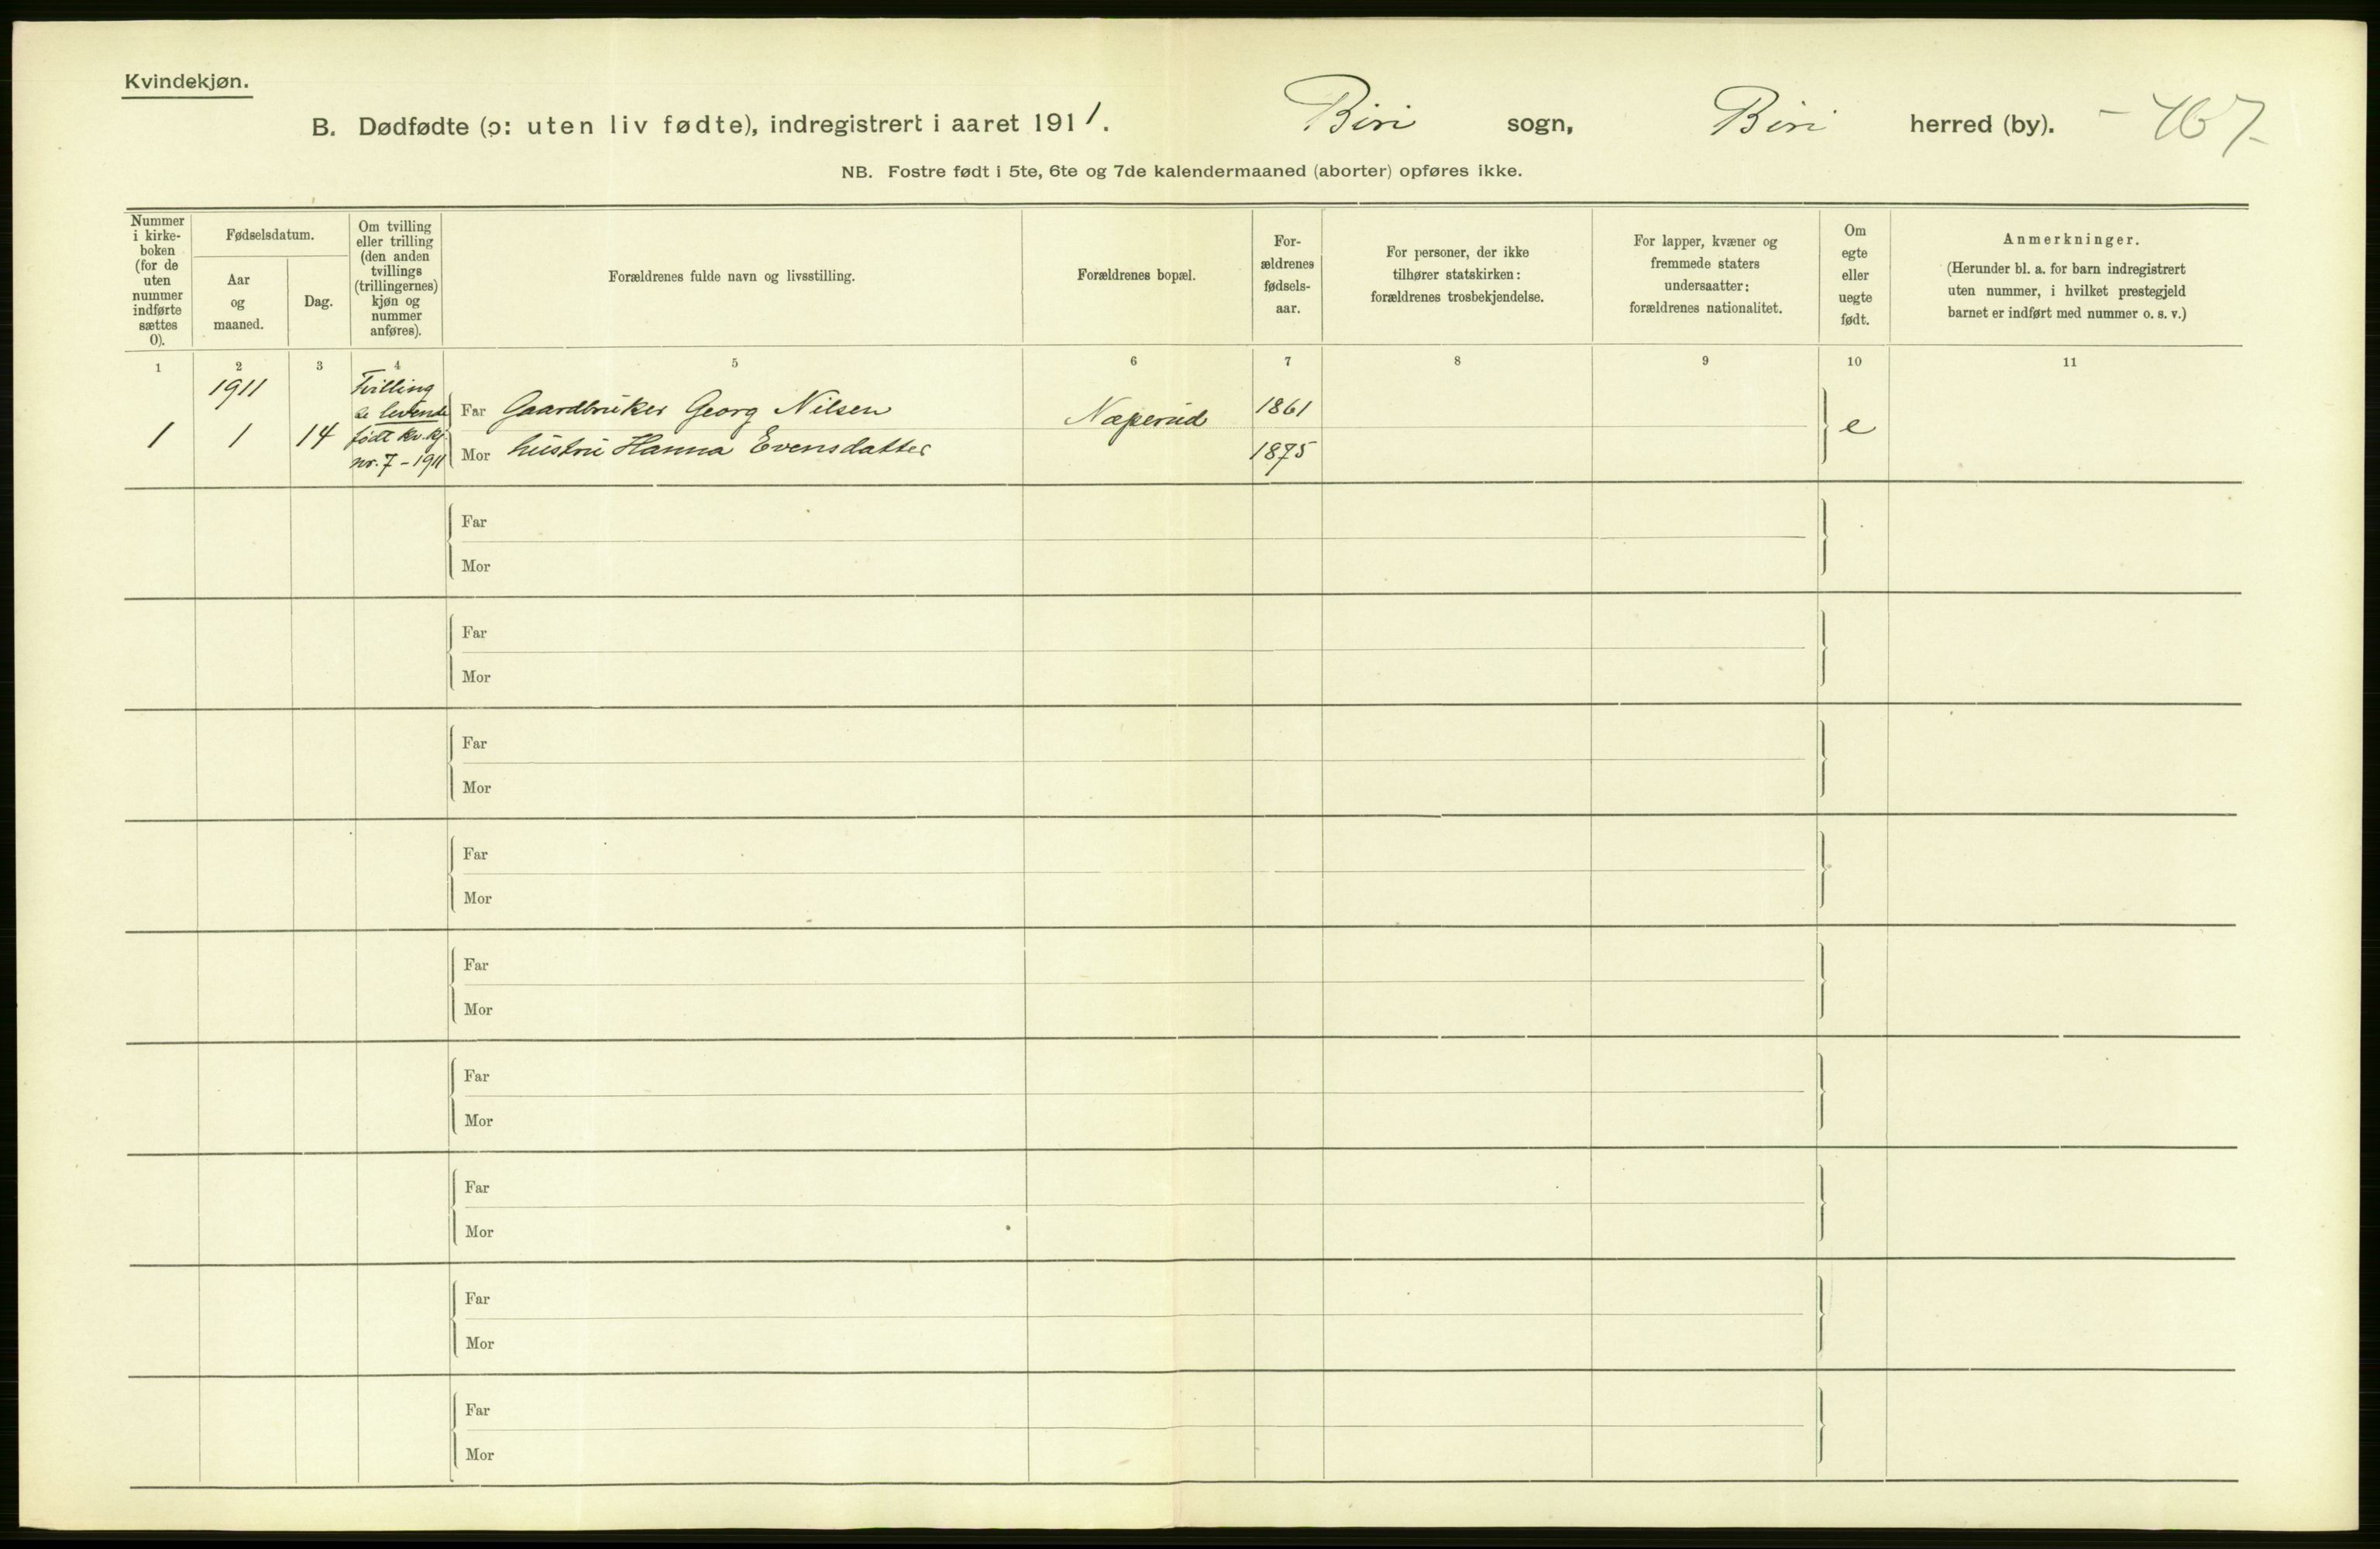 Kvindekjøn.
B. Dødfødte (ɔ: uten liv fødte), indregistrert i aaret 1911. Biri sogn, Biri herred (by). - 467.
NB. Fostre født i 5te, 6te og 7de kalendermaaned (aborter) opføres ikke.
Nummer
i kirke-
boken
(for de
uten
nummer
indførte
sættes
0).
Fødselsdatum.
Aar
og
maaned.
Dag.
Om tvilling
eller trilling
(den anden
tvillings
(trillingernes)
kjøn og
nummer
anføres).
Forældrenes fulde navn og livsstilling.
Forældrenes bopæl.
For-
ældrenes
fødsels-
aar.
For personer, der ikke
tilhører statskirken:
forældrenes trosbekjendelse.
For lapper, kvæner og
fremmede staters
undersaatter:
forældrenes nationalitet.
Om
egte
eller
uegte
født.
Anmerkninger.
(Herunder bl. a. for barn indregistrert
uten nummer, i hvilket prestegjeld
barnet er indført med nummer o. s. v.)
1 2 3 4 5 6 7 8 9 10 11
1
1911
1
14
Tvilling
se levende
født kv. kj.
nr. 7 - 1911
Far Gaardbruker Georg Nilsen
Mor hustru Hanna Evensdatter
Næperud
1861
1875
e
Far
Mor
Far
Mor
Far
Mor
Far
Mor
Far
Mor
Far
Mor
Far
Mor
Far
Mor
Far
Mor